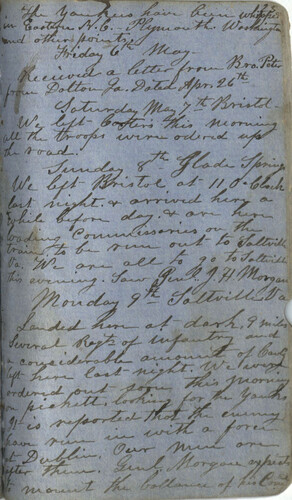 The Yankees have been whipped
in Eastern N.C. Plymouth Washington
and other points.
Friday 6th May.
Received a letter from Bro. Peter
from Dalton Ga. Dated Apr. 26th
Saturday May 7th Bristol
We left this morning
all the troops were ordered up
the road.
Sunday 8th Glade Springs
We left Bristol at 11 O.clock
last night & arrived here a
while before day, & are here
loading Commissaries on the
train, to be run out to Saltville
Va. We are all to go to Saltville
this evening. Saw Genl J. H. Morgan
Monday 9th Saltville Va
Landed here at dark, 9 miles
Several Regts of infantry and
a considerable amount of Cavly
left here last night. We were
ordered out soon this morning
on pickett, looking for the Yanks
It is reported that the enemy
have run in with a force
at Dublin. Our men are
after them. Genl. Morgan expects
to mount the ballance of his